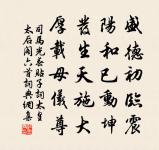 盛德初臨震
陽和已動坤
發生天施大
厚載母儀尊
司馬光春貼子詞太皇
太后閣六首詞典網集